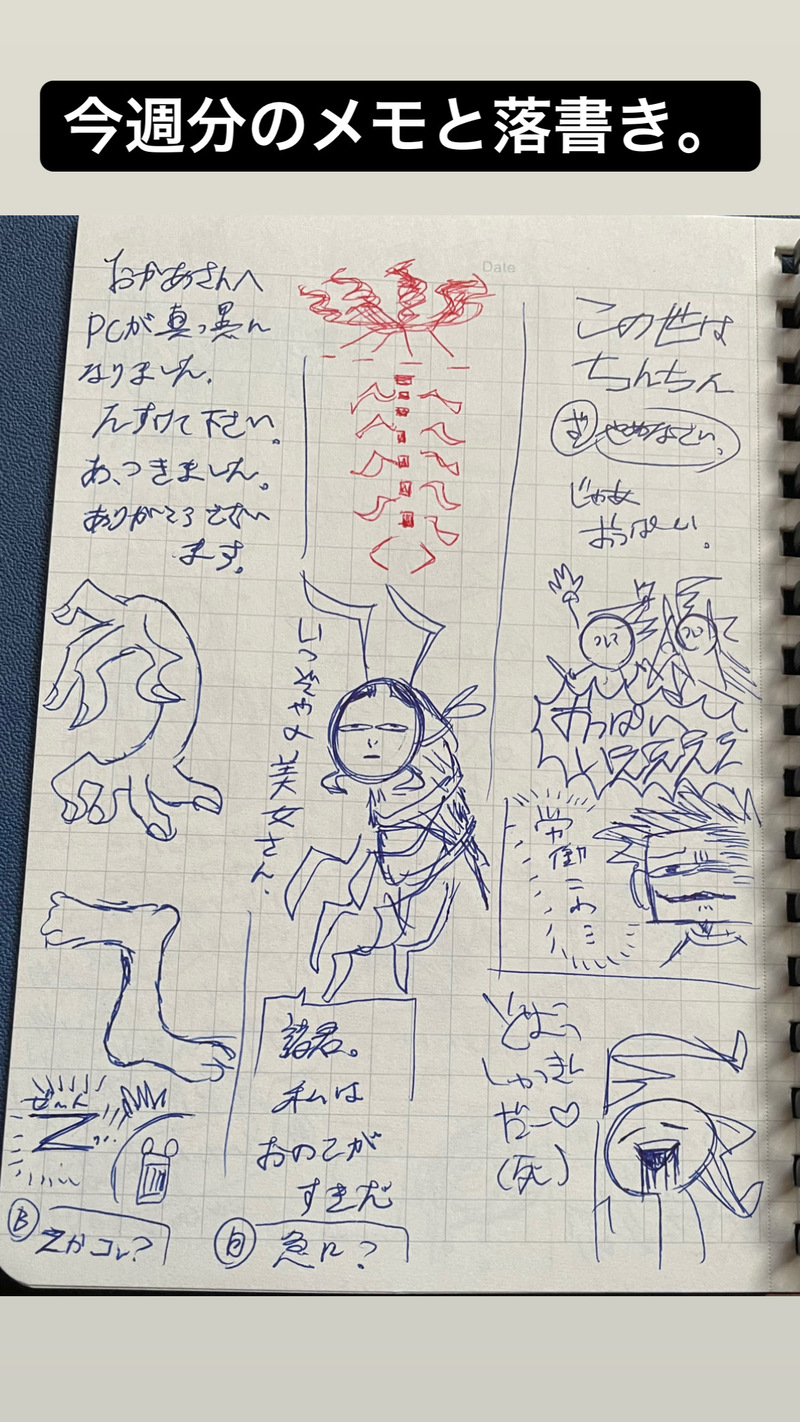 今週分のメモと落書き。
Date
おかあさんへ
PCが真っ黒ん
なりました。
たすけて下さい。
あ、つきました。
ありがとうござい
ます。
この世は
ちんちん
やめなさい。
じゃあ
おっぱい。
美女さん。
おっぱい
労働
こわ
ミ
諸君。
私は
おのこが
すきだ
急に?
ぜーんト
Z
B
Zかコレ?
どよう
しゅっきん
だー♡
(死)